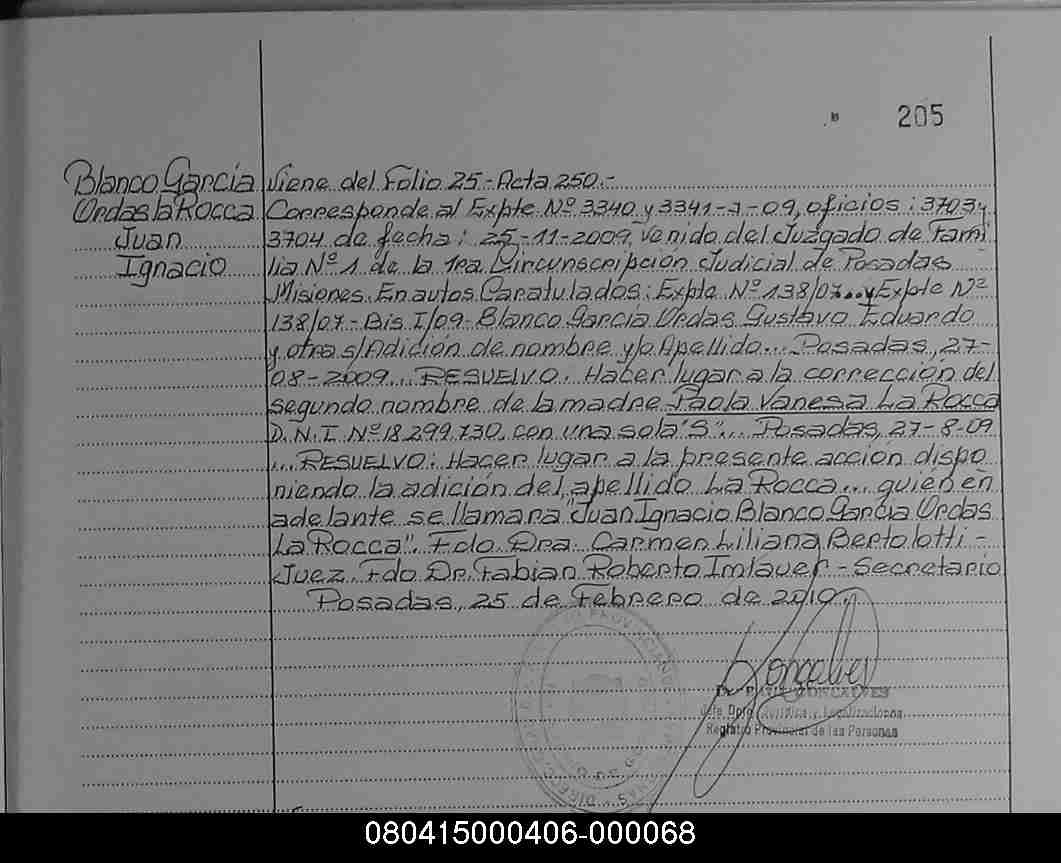 205
Blanco García
Ordas la Rocca
Juan
Ignacio
Viene del Folio 25-Acta 250.-
Corresponde al Expte Nº 3340 y 3341-J-09, oficios: 3703 y
3704 de fecha: 25-11-2009, venido del Juzgado de Fami
lia Nº 1 de la 1ra Circunscripción Judicial de Posadas
Misiones. En autos Caratulados: Expte Nº 138/07... y Expte Nº
138/07-Bis I/09-Blanco García Ordas Gustavo Eduardo
y otra s/Adición de nombre y/o Apellido... Posadas, 27-
08-2009... RESUELVO. Hacer lugar a la corrección del
segundo nombre de la madre Paola Vanesa La Rocca
D.N.I Nº 18.299.730, con una sola "S"... Posadas, 27-8-09
... RESUELVO: Hacer lugar a la presente acción dispo
niendo la adición del apellido La Rocca... quién en
adelante se llamara "Juan Ignacio Blanco García Ordas
La Rocca". Fdo. Dra. Carmen Liliana Bertolotti-
Juez. Fdo Dr. Fabian Roberto Imlauer-Secretario
Posadas, 25 de Febrero de 2010.
GONCALVES
Jefe Dpto. Jurídica y Legalizaciones
Registro Provincial de las Personas
080415000406-000068